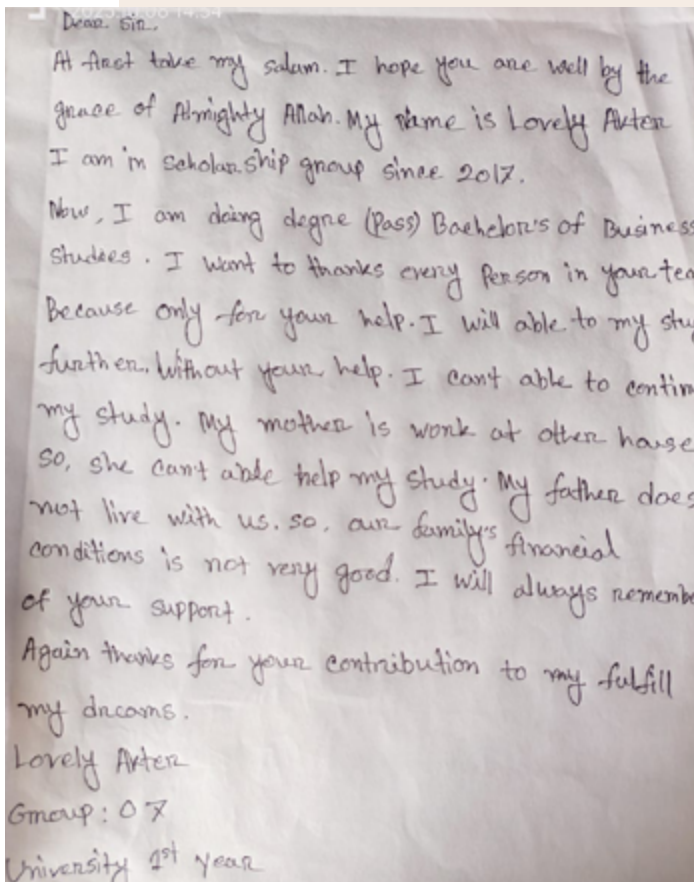 Dear Sir.
At first take my salam. I hope you are well by the
grace of Almighty Allah. My name is Lovely Akter
I am in Scholarship group since 2017.
Now, I am doing degre (Pass) Bachelor's of Business
Studies. I want to thanks every Person in your tea
Because only for your help. I will able to my stu
further. Without your help. I can't able to contin
my study. My mother is work at other house
so, she can't able help my study. My father does
not live with us. so, our family's financial
conditions is not very good. I will always remembe
of your support.
Again thanks for your contribution to my fulfill
my dreams.
Lovely Akter
Group: 07
University 1st year